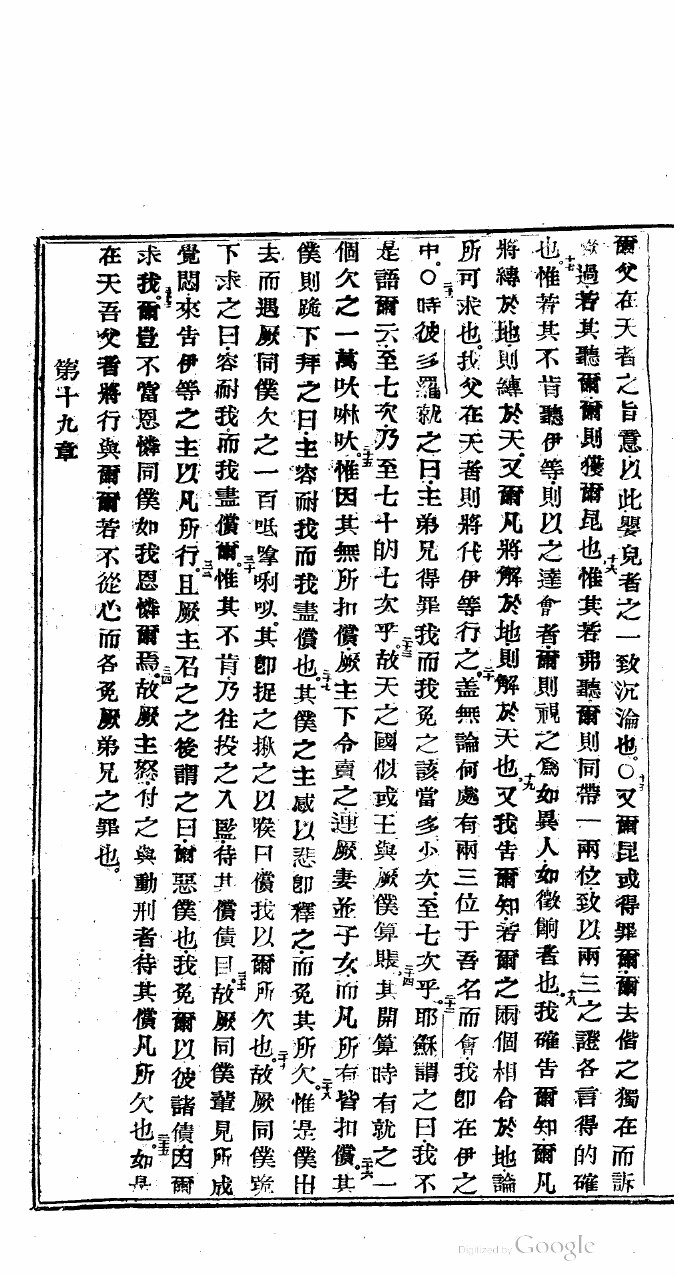 爾父在天者之旨意以此嬰兒者之一致沉淪也。○十五又爾昆或得罪爾爾去偕之獨在而訴
厥過若其聽爾爾則獲爾昆也十六惟其若弗聽爾則同帶一兩位致以兩三之證各言得的確
也。十七惟若其不肯聽伊等則以之達會者爾則視之為如異人如徵餉者也。十八我確告爾知爾凡
將縛於地則縛於天又爾凡將解於地則解於天也。十九又我告爾知若爾之兩個相合於地論
所可求也。我父在天者則將代伊等行之。二十蓋無論何處有兩三位于吾名而會我卽在伊之
中。○二十一時彼多羅就之曰主弟兄得罪我而我免之該當多少次至七次乎。二十二耶穌謂之曰我不
是語爾云至七次乃至七十的七次乎。二十三故天之國似或王與厥僕算賬。二十四其開算時有就之一
個欠之一萬吠啉吠。二十五惟因其無所扣償厥主下令賣之連厥妻並子女而凡所有皆扣償。二十六其
僕則跪下拜之曰主容耐我而我盡償也。二十七其僕之主感以悲卽釋之而免其所欠。二十八惟是僕出
去而遇厥同僕欠之一百呧嗱唎吆其卽捉之揪之以喉曰償我以爾所欠也。二十九故厥同僕跪
下求之曰容耐我而我盡償爾。三十惟其不肯乃往投之入監待其償債目。三十一故厥同僕輩見所成
覺悶來告伊等之主以凡所行。三二且厥主召之之後謂之曰爾惡僕也我免爾以彼諸債因爾
求我。三三爾豈不當恩憐同僕如我恩憐爾焉。三四故厥主怒付之與動刑者待其償凡所欠也。三十五如是
在天吾父者將行與爾爾若不從心而各免厥弟兄之罪也。
第十九章
Digitized by Google